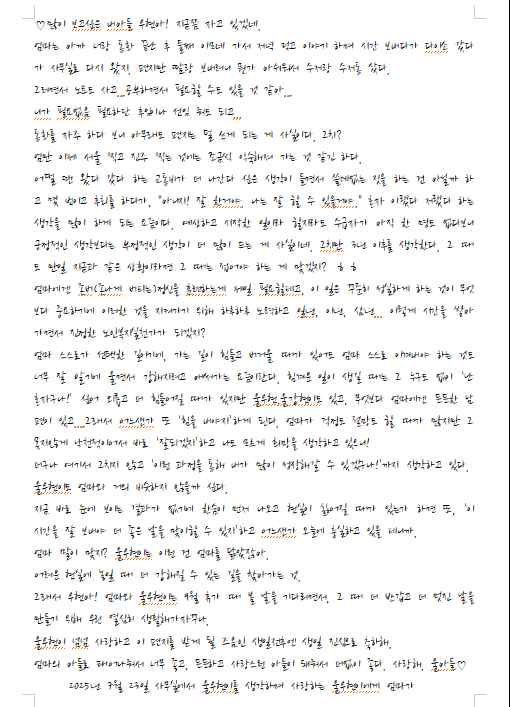 ♡많이 보고싶은 내아들 우현아! 지금쯤 자고 있겠네.
엄마는 아까 너랑 통화 끝난 후 둘째 이모네 가서 저녁 먹고 이야기 하며 시간 보내다가 다이소 갔다
가 사무실로 다시 왔지. 편지만 딸랑 보내려니 뭔가 아쉬워서 수저랑 수저통 샀다.
그러면서 노트도 사고...공부하면서 필요할 수도 있을 것 같아...
네가 필요없음 필요하단 후임이나 선임 줘도 되고...
통화를 자주 하다 보니 아무래도 편지는 덜 쓰게 되는 게 사실이다. 그치?
엄만 이제 서울 찍고 진주 찍는 것에는 조금씩 익숙해져 가는 것 같긴 하다.
어쩔 땐 왔다 갔다 하는 교통비가 더 나간다 싶은 생각이 들면서 쓸데없는 짓을 하는 건 아닐까 하
고 몇 번이고 후회를 하다가, "아니지! 잘 한거야. 나는 잘 할 수 있을거야." 혼자 이랬다 저랬다 하는
생각을 많이 하게 되는 요즘이다. 예상하고 시작한 일이라 할지라도 수급자가 아직 한 명도 없다보니
긍정적인 생각보다는 부정적인 생각이 더 많이 드는 게 사실이네. 그치만 3년 이후를 생각한다. 그 때
도 만일 지금과 같은 상황이라면 그 때는 접어야 하는 게 맞겠지? ㅎㅎ
엄마에겐 존버(존나게 버티는)정신을 훈련하는게 제일 필요할테고, 이 일은 꾸준히 성실하게 하는 것이 무엇
보다 중요하기에 이러한 것을 지켜가기 위해 하루하루 노력하고 일년, 이년, 삼년... 이렇게 시간을 쌓아
가면서 진정한 노인복지실천가가 되겠지?
엄마 스스로가 선택한 길이기에, 가는 길이 힘들고 버거울 때가 있어도 엄마 스스로 이겨내야 하는 것도
너무 잘 알기에 울면서 강해지려고 애써가는 요즘이란다. 힘겨운 일이 생길 때는 그 누구도 없이 '난
혼자구나!' 싶어 외롭고 더 힘들어질 때가 있지만 울우현,울강현이도 있고, 무엇보다 엄마에겐 든든한 남
편이 있고....그래서 어느샌가 또 '힘을 내야지'하게 된다. 엄마가 걱정도 절망도 할 때가 많지만 그
못지않게 낙천적이어서 바로 '잘되겠지'하고 나도 모르게 희망을 생각하고 있으니!
더구나 여기서 그치지 않고 '이런 과정을 통해 내가 많이 성장해갈 수 있겠구나!'까지 생각하고 있다.
울우현이도 엄마와 거의 비슷하지 않을까 싶다.
지금 바로 눈에 보이는 결과가 없기에 한숨이 먼저 나오고 현실이 싫어질 때가 있는가 하면 또, '이
시간을 잘 보내야 더 좋은 날을 맞이할 수 있지'하고 어느샌가 오늘에 충실하고 있을 테니까.
엄마 말이 맞지? 울우현이는 이런 건 엄마를 닮았잖아.
어려운 현실에 놓일 때 더 강해질 수 있는 길을 찾아가는 것.
그래서 우현아! 엄마와 울우현이는 9월 휴가 때 볼 날을 기다리면서, 그 때 더 반갑고 더 멋진 날을
만들기 위해 우린 열심히 생활해가자꾸나.
울우현이 넘넘 사랑하고 이 편지를 받게 될 즈음인 생일전후엔 생일 진심으로 축하해.
엄마의 아들로 태어나줘서 너무 좋고, 든든하고 사랑스런 아들이 돼줘서 더없이 좋다. 사랑해, 울아들♡
2025년 7월 23일 사무실에서 울우현이를 생각하며 사랑하는 울우현이에게 엄마가